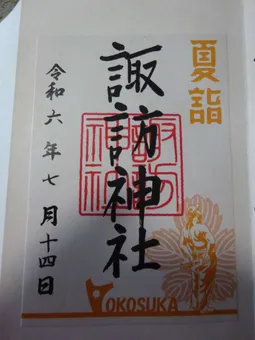 夏詣
諏訪神社
令和六年七月十四日
諏訪神社
YOKOSUKA